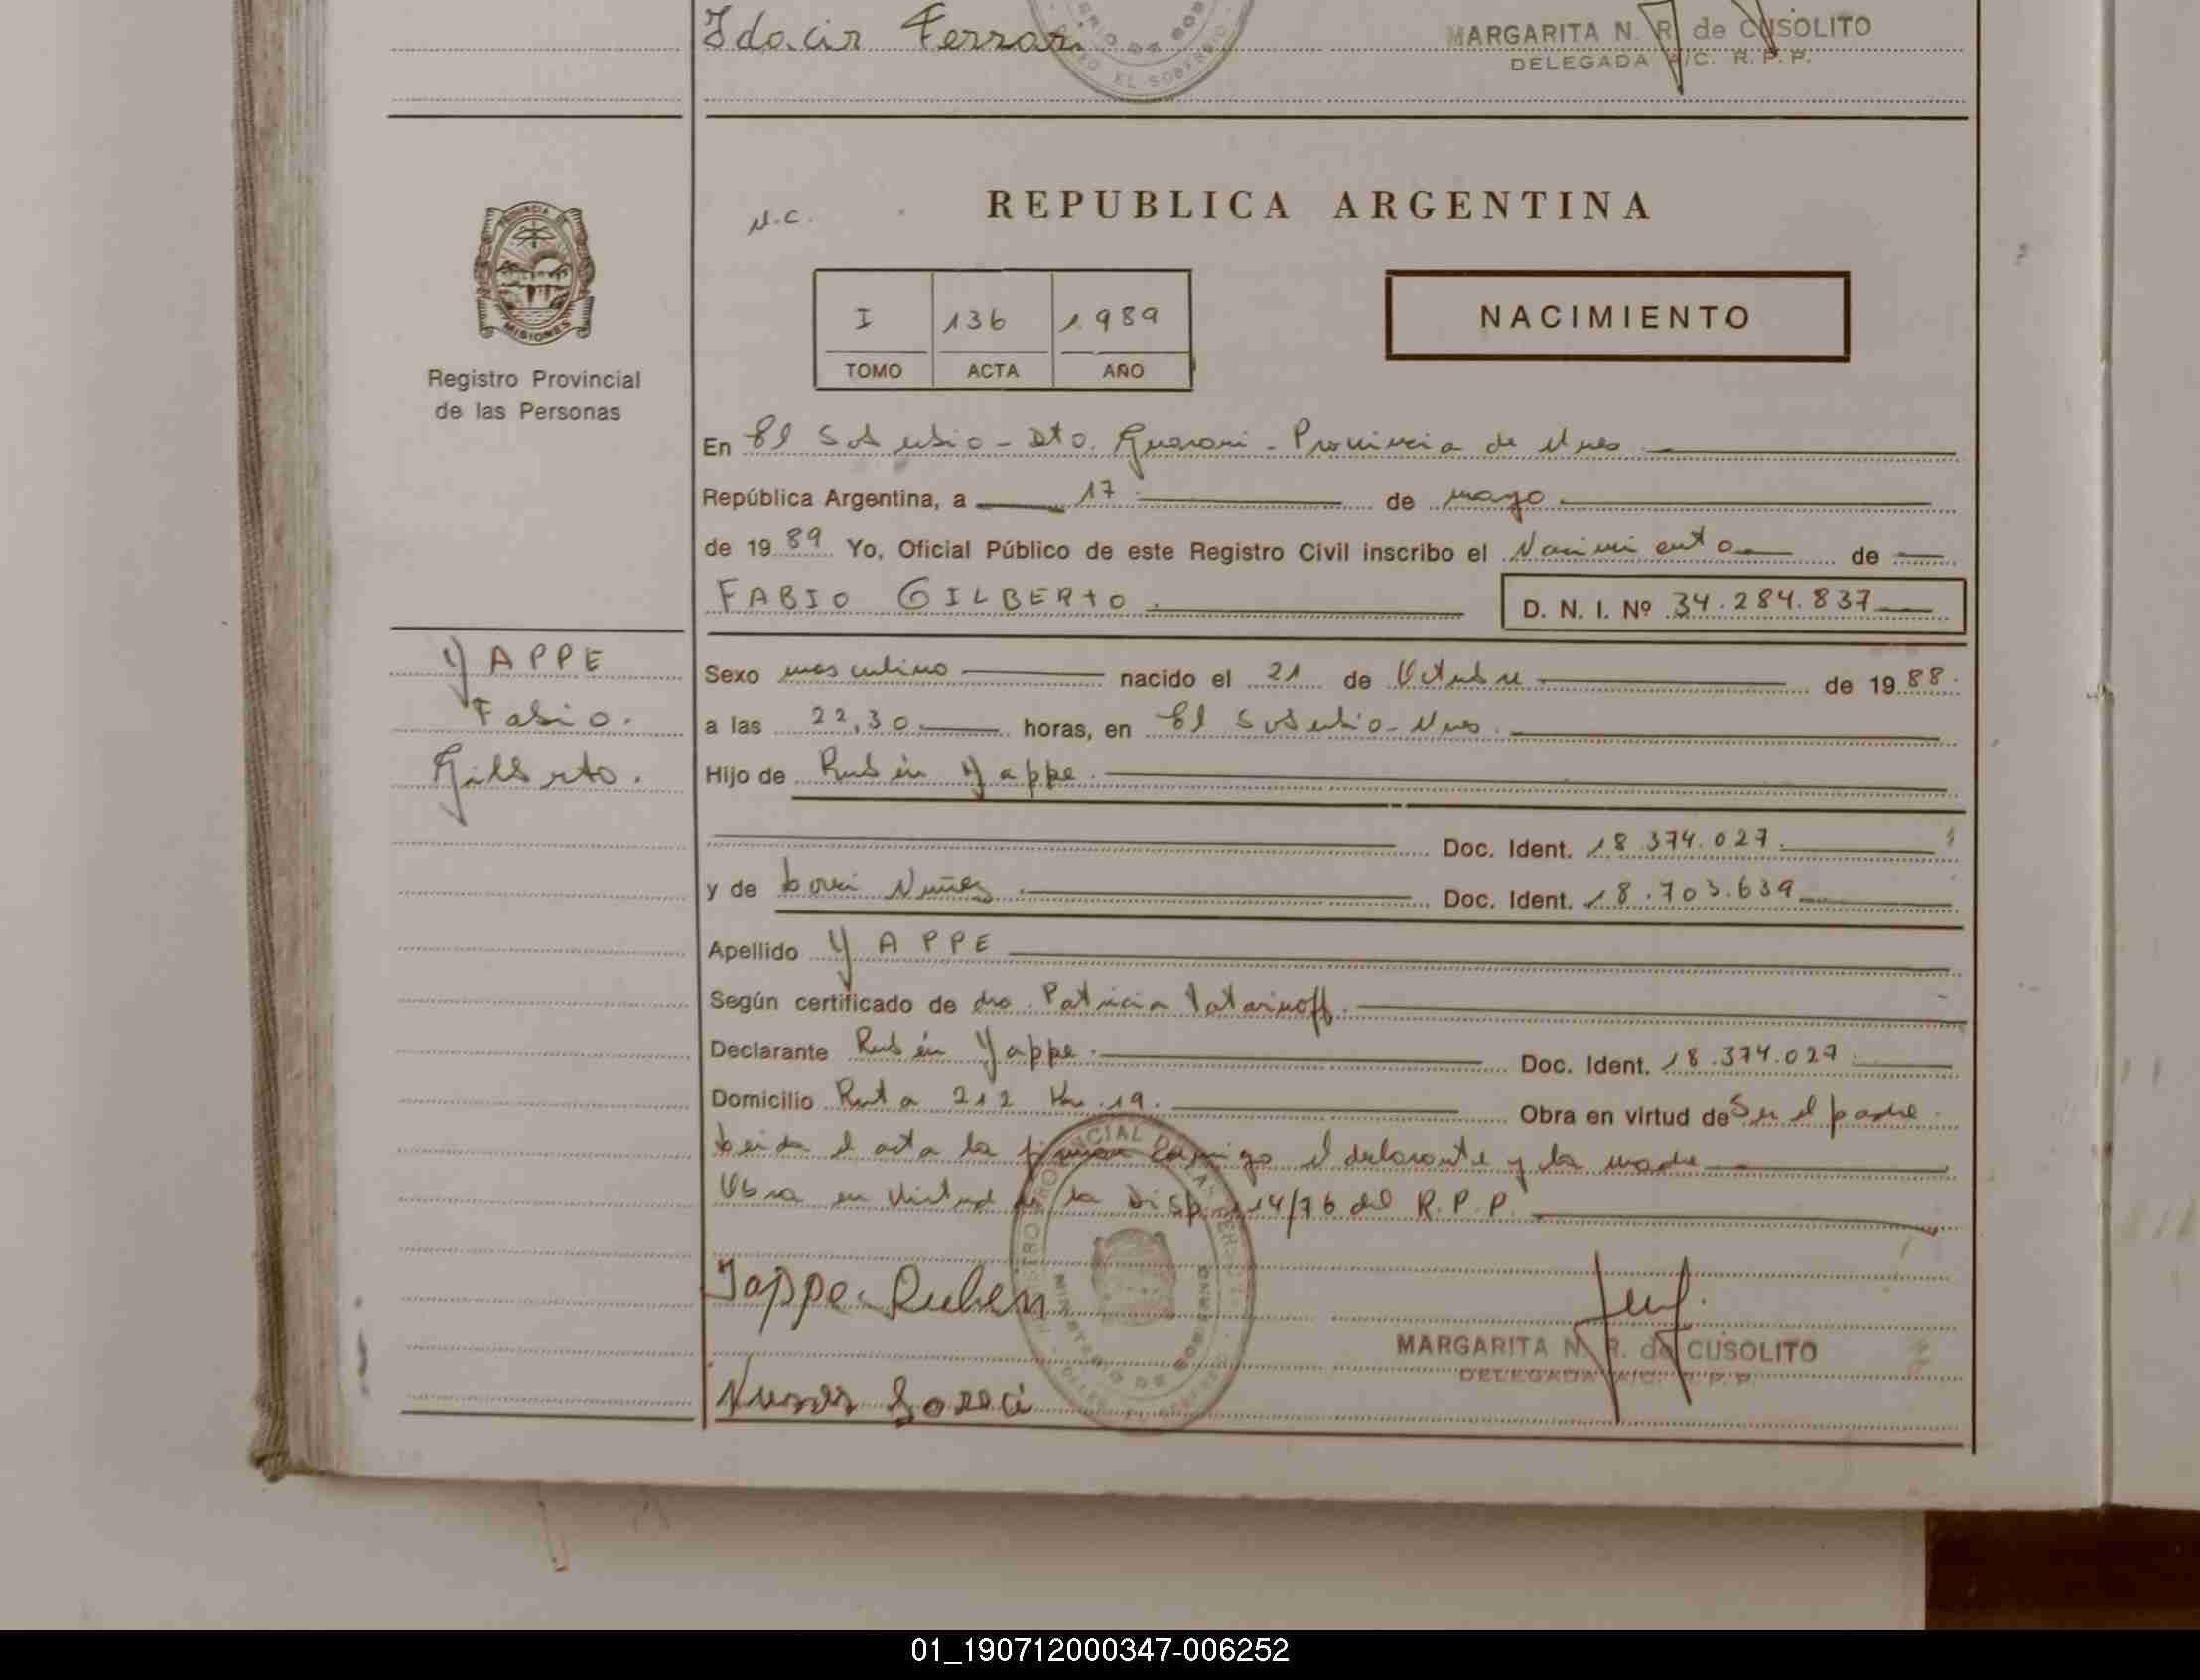 Idacir Ferrari
MARGARITA N. R. de CUSOLITO
DELEGADA A/C. R. P. P.
PROVINCIA DE
MISIONES
Registro Provincial
de las Personas
N.C.
REPUBLICA ARGENTINA
I 136 1989
TOMO ACTA AÑO
NACIMIENTO
En El Soberbio - Dto. Guarani - Provincia de Mnes
República Argentina, a 17 de mayo
de 1989 Yo, Oficial Público de este Registro Civil inscribo el Nacimiento de
FABIO GILBERTO
D. N. I. Nº 34.284.837
YAPPE
Fabio.
Gilberto.
Sexo masculino nacido el 21 de Octubre de 1988.
a las 22,30 horas, en El Soberbio - Mnes.
Hijo de Rubén Yappe.
Doc. Ident. 18.374.027.
y de Nuñez Doc. Ident. 18.703.639
Apellido YAPPE
Según certificado de dra. Patricia Tatarinoff.
Declarante Rubén Yappe. Doc. Ident. 18.374.027.
Domicilio Ruta 212 Km. 19. Obra en virtud de Ser el padre.
Leida el acta la firman conmigo el declarante y la madre
Obra en Virtud de la Disp. 14/76 del R.P.P.
Yappe Ruben
MARGARITA N. R. de CUSOLITO
DELEGADA A/C. R. P. P.
Nunes Loreci
01_190712000347-006252